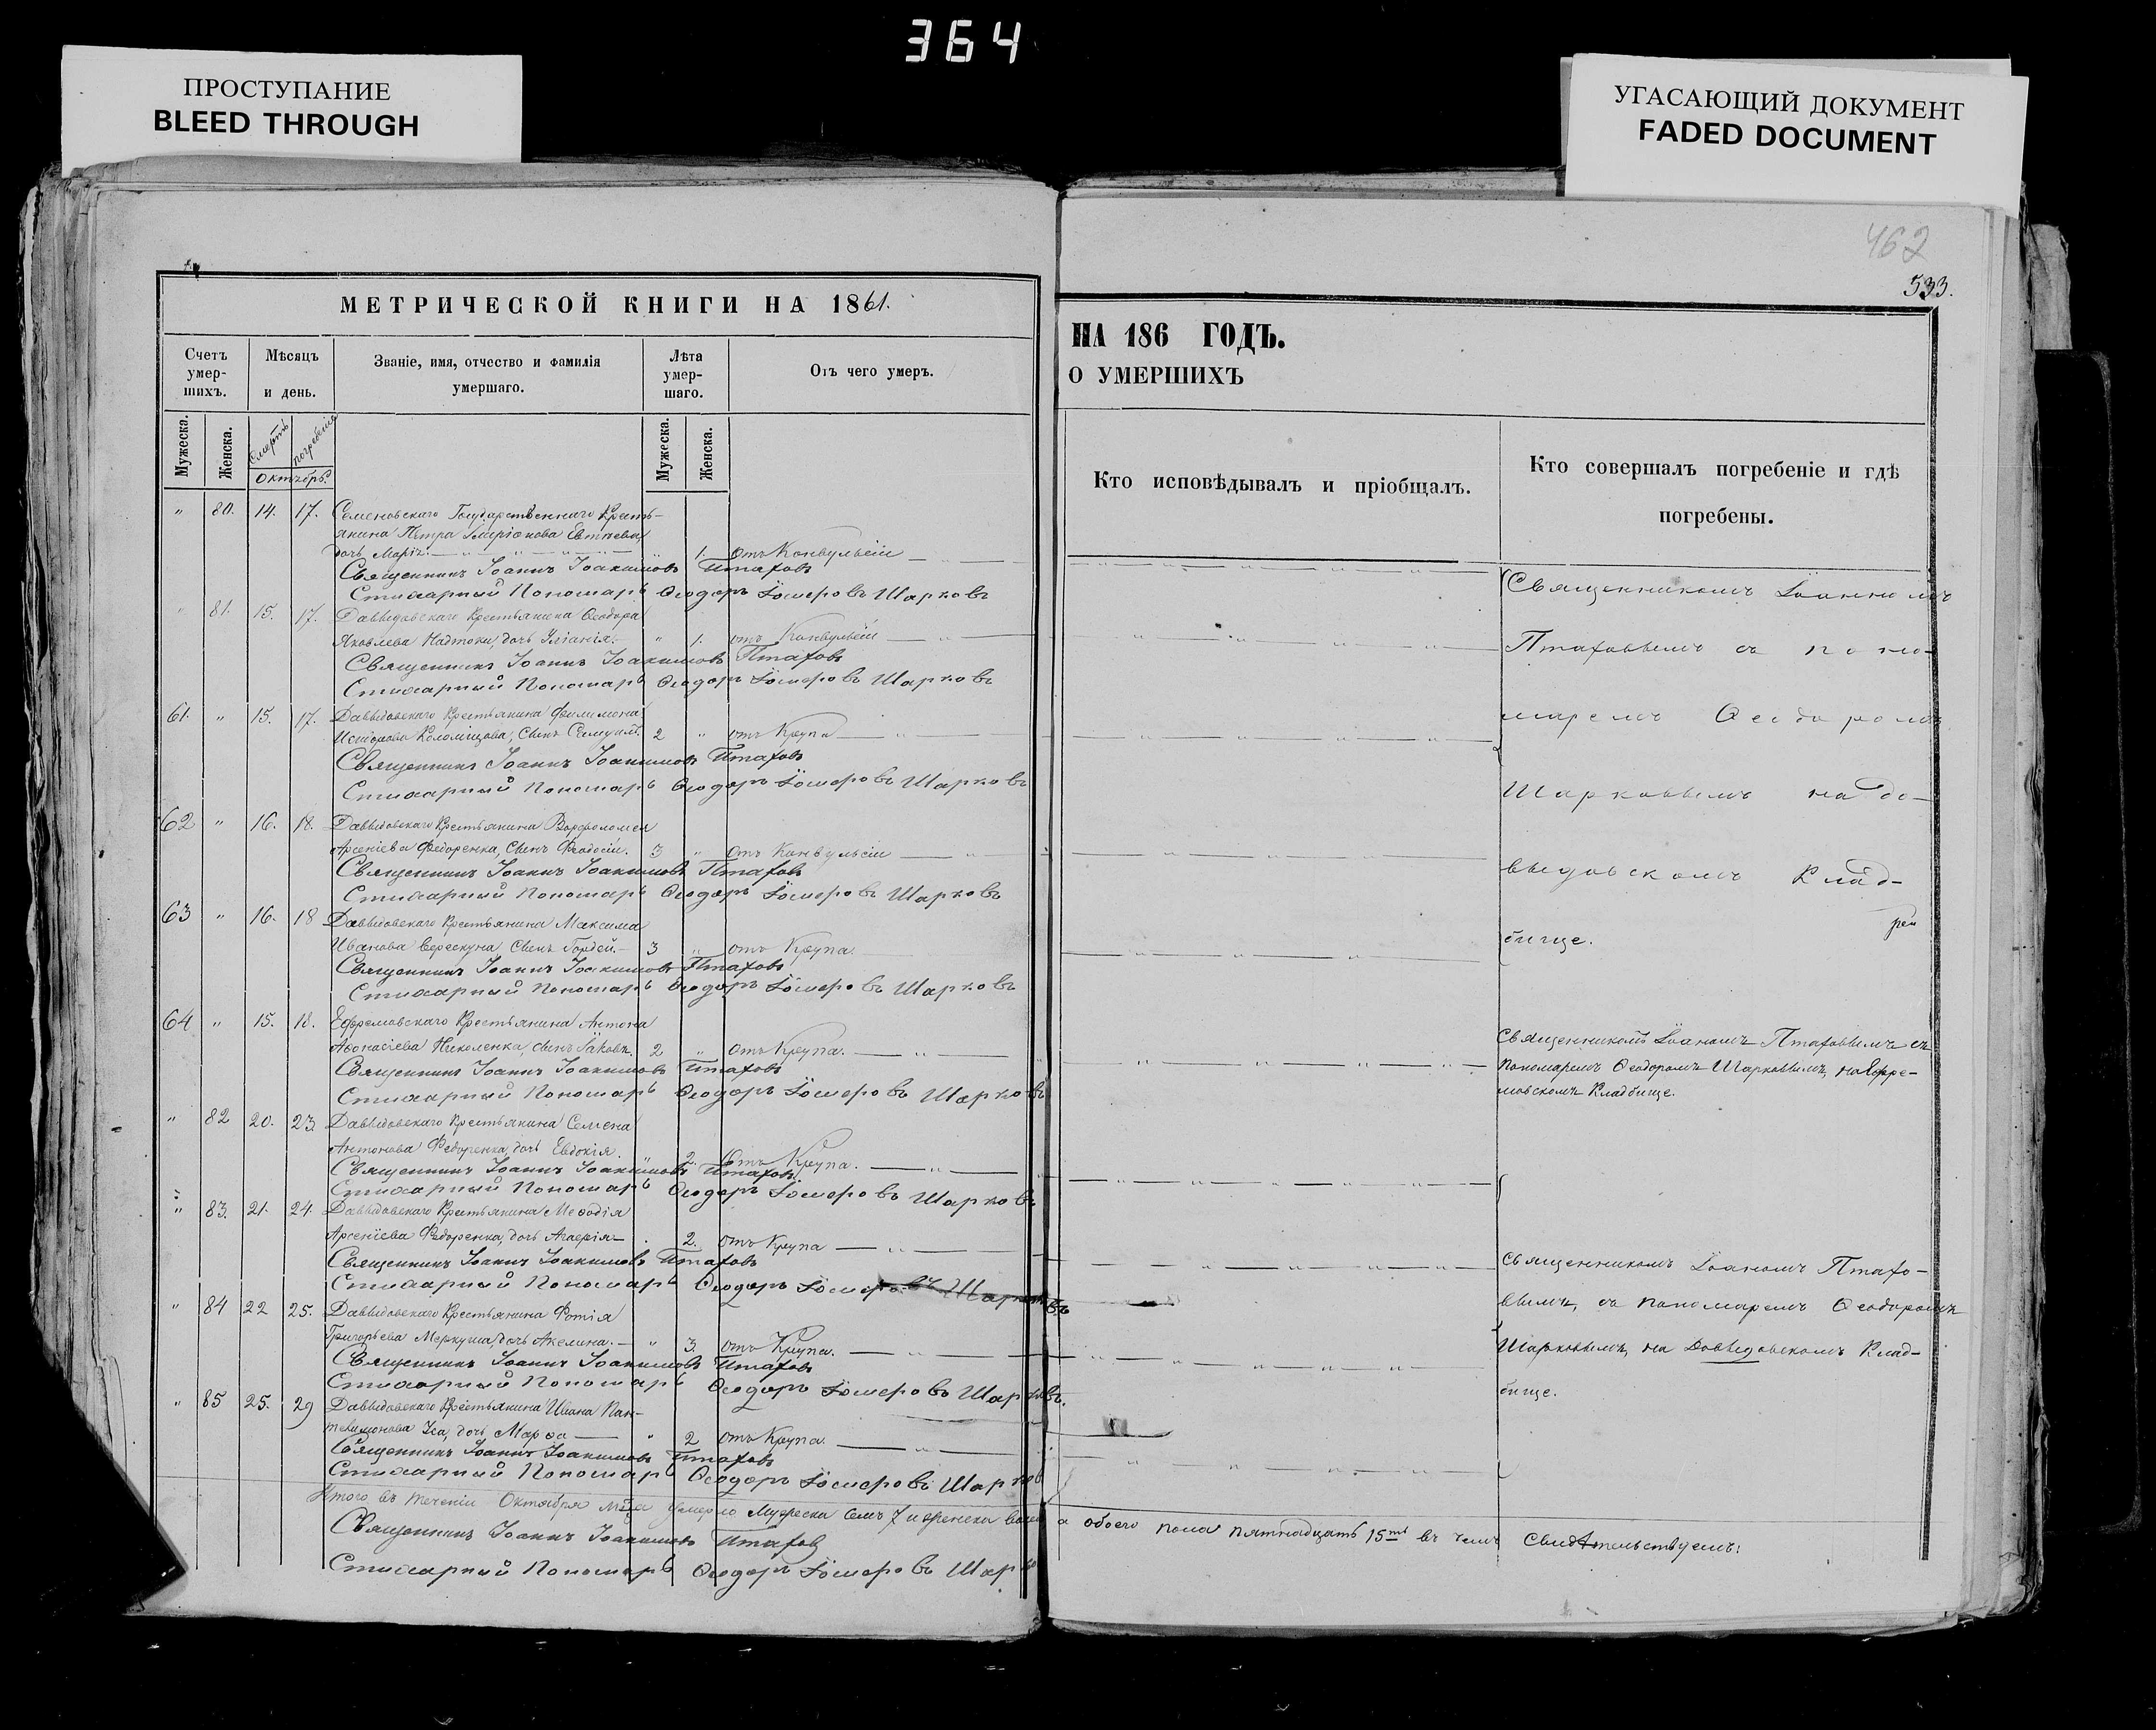 364
ПРОСТУПАНИЕ
BLEED THROUGH
УГАСАЮЩИЙ ДОКУМЕНТ
FADED DOCUMENT
462
533.
МЕТРИЧЕСКОЙ КНИГИ НА 1861.
Счетъ умер-шихъ.
Мѣсяцъ и день.
Званіе, имя, отчество и фамилія умершаго.
Лѣта умер-шаго.
Отъ чего умеръ.
Мужеска.
Женска.
Смерти
погребенія
Октябрь
Мужеска.
Женска.
„ 80. 14. 17. Семеновскаго Государственнаго Кресть-
янина Петра
дочь Марія. „ 1. отъ Конвульсіи
Священникъ Іоаннъ Іоакимовъ Птаховъ
Стихарный Пономарь Ѳеодоръ Шарковъ
„ 81. 15. 17. Давыдовскаго Крестьянина Ѳеодора
Яковлева Надтоки, дочь „ 1. отъ Конвульсіи
Священникъ Іоаннъ Іоакимовъ Птаховъ
Стихарный Пономарь Ѳеодоръ Шарковъ
61. „ 15. 17. Давыдовскаго Крестьянина Филимона
Коломійцова, Сынъ 2 „ отъ Крупа
Священникъ Іоаннъ Іоакимовъ Птаховъ
Стихарный Пономарь Ѳеодоръ Шарковъ
62 „ 16. 18. Давыдовскаго Крестьянина Варфоломея
Арсеніева Федоренка, Сынъ Феодосій. 3 „ Отъ Конвульсіи
Священникъ Іоаннъ Іоакимовъ Птаховъ
Стихарный Пономарь Ѳеодоръ Шарковъ
63 „ 16. 18 Давыдовскаго Крестьянина Максима
Иванова Верескуна Сынъ Гордей. 3 „ отъ Крупа
Священникъ Іоаннъ Іоакимовъ Птаховъ
Стихарный Пономарь Ѳеодоръ Шарковъ
64 „ 15. 18. Ефремовскаго Крестьянина Антона
Аѳонасіева Николенка, сынъ Іаковъ. 2 „ Отъ Крупа.
Священникъ Іоаннъ Іоакимовъ Птаховъ
Стихарный Пономарь Ѳеодоръ Шарковъ
„ 82 20. 23. Давыдовскаго Крестьянина Семена
Антонова Федоренка, дочь Евдокія. „ 2. Отъ Крупа.
Священникъ Іоаннъ Іоакимовъ Птаховъ
Стихарный Пономарь Ѳеодоръ Шарковъ
„ 83. 21. 24. Давыдовскаго Крестьянина Меѳодія
Арсеніева Федоренка, дочь 2. отъ Крупа
Священникъ Іоаннъ Іоакимовъ Птаховъ
Стихарный Пономарь Ѳеодоръ Шарковъ
„ 84 22 25. Давыдовскаго Крестьянина Фотія
Григорьева Меркуша, дочь Акелина. „ 3. отъ Крупа.
Священникъ Іоаннъ Іоакимовъ Птаховъ
Стихарный Пономарь Ѳеодоръ Шарковъ.
„ 85 25. 29 Давыдовскаго Крестьянина Ивана Пан-
телимонова дочь Марѳа „ 2 отъ Крупа.
Священникъ Іоаннъ Іоакимовъ Птаховъ
Стихарный Пономарь Ѳеодоръ Шарков
Итого въ теченіи Октября м-ца умерло Мужеска семъ 7 и женска
Священникъ Іоаннъ Іоакимовъ Птаховъ
Стихарный Пономарь Ѳеодоръ Шарко
НА 186 ГОДЪ.
О УМЕРШИХЪ
Кто исповѣдывалъ и пріобщалъ.
Кто совершалъ погребеніе и гдѣ погребены.
Священникомъ Іоанномъ
Птаховымъ съ поно-
маремъ Ѳеодоромъ
Шарковымъ на Да-
выдовскомъ Клад-
бище.
Священникомъ Іоаномъ Птаховымъ съ
Пономаремъ Ѳеодоромъ Шарковымъ, на Ефре-
мовскомъ Кладбище.
Священникомъ Іоаномъ Птахо-
вымъ, съ пономаремъ Ѳеодоромъ
Шарковымъ, на Давыдовскомъ Клад-
бище.
а обоего пола пятнадцать 15ть въ чемъ Свидѣтельствуемъ: